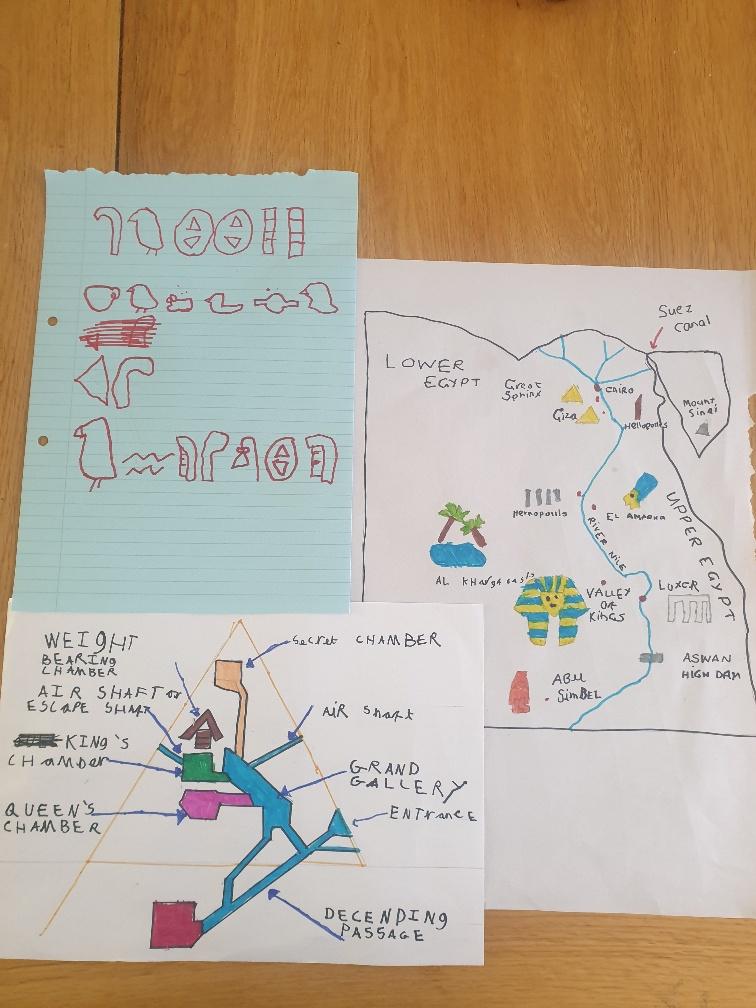 Suez
Canal
LOWER
EGYPT
Great
Sphinx
CAIRO
Giza
Mount
Sinai
Hermopoulis
EL AMARNA
UPPER EGYPT
RIVER NILE
VALLEY
OF
Kings
LUXER
ASWAN
HIGH DAM
ABU
SimBEL
WEIGHT
BEARING
CHAMBER
Secret CHAMBER
AIR SHAFT or
ESCAPE SHAFT
AIR Shaft
KING's
CHamber
GRAND
GALLERY
QUEEN's
CHAMBER
ENTrance
DECENDING
PASSAGE